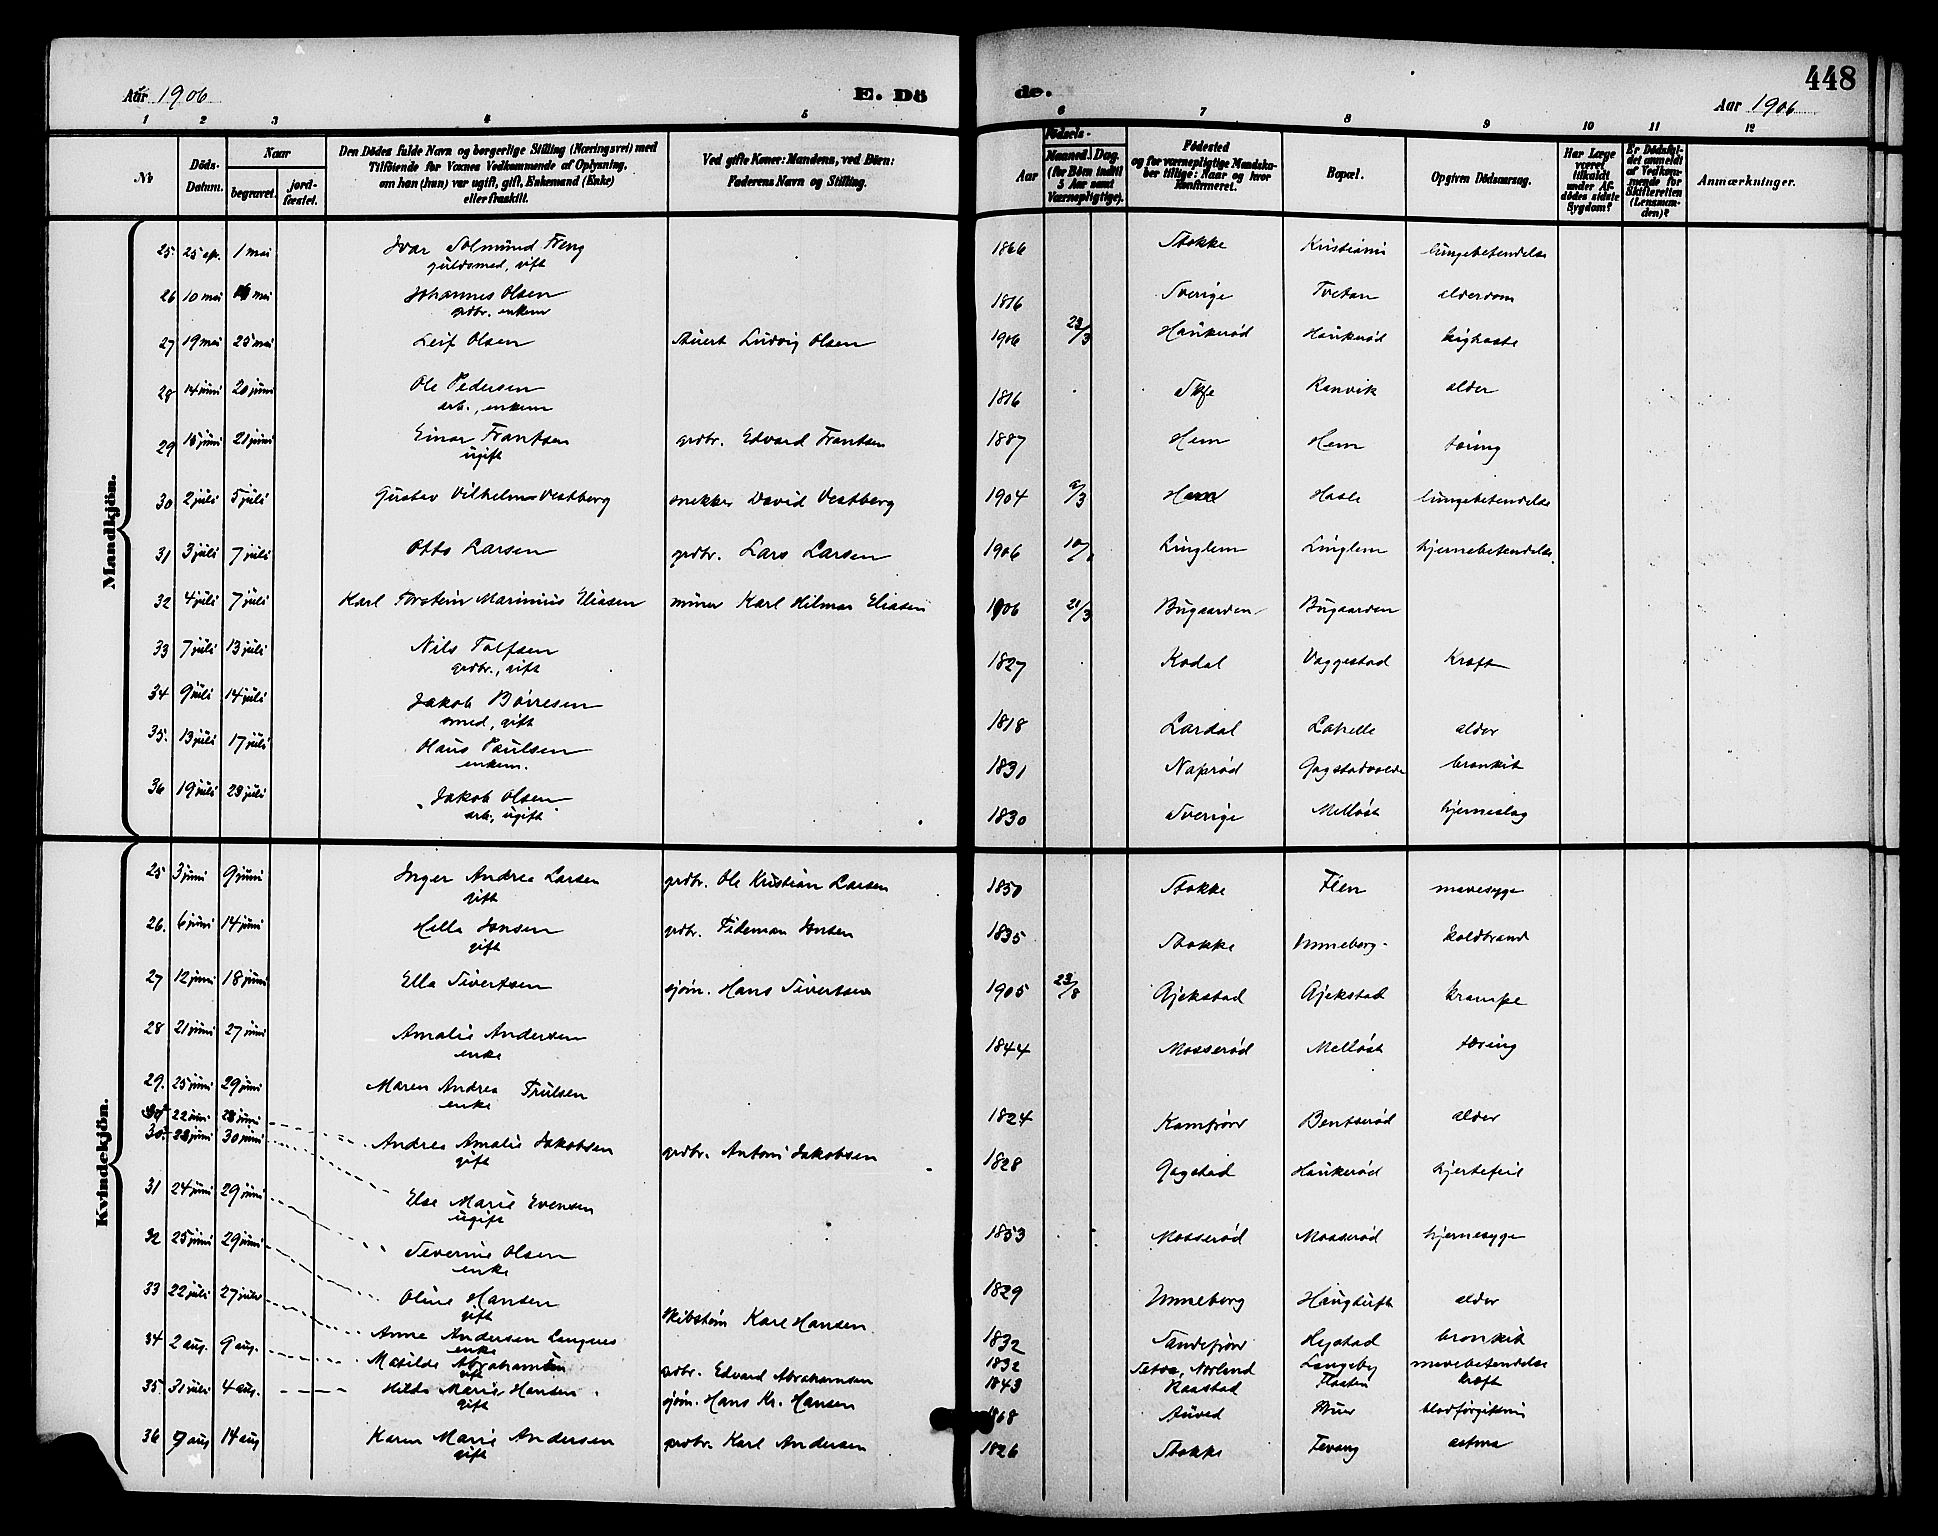 448
Aar 1906
E. Dö
de.
Aar 1906
1 2 3 4 5 6 7 8 9 10 11 12
No
Döds-Datum.
Naar
begravet.
jord-fæstet.
Den Dödes fulde Navn og borgerlige Stilling (Næringsvei) med
Tilföiende for Voxnes Vedkommende af Oplysning,
om han (hun) var ugift, gift, Enkemand (Enke)
eller fraskilt.
Ved gifte Koner: Mandens, ved Börn:
Faderens Navn og Stilling.
Aar
Födsels-
Maaned. Dag.
(for Börn indtil
5 Aar samt
Værnepligtige).
Födested
og for værnepligtige Mandska-
ber tillige: Naar og hvor
Konfirmeret.
Bopæl.
Opgiven Dödsaarsag.
Har Læge
været
tilkaldt
under Af-
dödes sidste
Sygdom?
Er Dödsfal-
det anmeldt
af Vedkom-
mende for
Skifteretten
(Lensman-
den)?
Anmærkninger.
Mandkjön.
25. 25 ap. 1 mai Ivar Solmund Freng 1866 Stokke Kristiania lungebetendelse
guldsmed, gift
26 10 mai mai Johannes Olsen 1816 Sverige Tvetan alderdom
grdbr. enkem
27 19 mai 25 mai Leif Olsen Sivert Ludvig Olsen 1906 23/3 Haukerød Haukerød kighoste
28 14 juni 20 juni Ole Pedersen 1816 Ranvik alder
arb., enkem
29 16 juni 21 juni Einar Frantsen grdbr. Edvard Frantsen 1887 Hem Hem tæring
ugift
30 2 juli 5 juli Gustav Vilhelm Vestberg snekker David Vestberg 1904 9/3 Hasle lungebetendelse
31 3 juli 7 juli Otto Larsen grdbr. Lars Larsen 1906 10/ Linglem Linglem hjernebetendelse
32 4 juli 7 juli Karl Torstein Marinius Eliasen murer Karl Hilmar Eliasen 1906 21/3 Bugaarden Bugaarden
33 7 juli 13 juli Nils Tolfsen 1827 Kodal Vaggestad kræft
grdbr., gift
34 9 juli 14 juli Jakob Börresen 1818 Lardal Lahelle alder
smed, gift
35. 13 juli 17 juli Olaus Paulsen 1831 Naprød Gogstadvolden bronkit
enkem.
36 19 juli 23 juli Jakob Olsen 1830 Sverige Melløst hjerneslag
arb., ugift
Kvindekjön.
25 3 juni 9 juni Inger Andrea Larsen grdbr. Ole Kristian Larsen 1850 Stokke Fien mavesyge
gift
26. 6 juni 14 juni Hella Jonsen grdbr. Tideman Jonsen 1835 Stokke Unneberg koldbrand
gift
27 12 juni 18 juni Ella Sivertsen sjøm. Hans Sivertsen 1905 23/8 Gjekstad Gjekstad krampe
28 21 juni 27 juni Amalie Andersen 1844 Mosserød Melløst tæring
enke
29. 25 juni 29 juni Maren Andrea Trulsen 1824 Kamfjord Bentserød alder
enke
22 juni 28 juni Andrea Amalie Jakobsen grdbr. Antoni Jakobsen 1828 Gogstad Haukerød hjertefeil
gift
30. 28 juni 30 juni Else Marie Evensen 1853 Mosserød Mosserød hjernesyge
ugift
31 24 juni 29 juni Severine Olsen 1829 Unneberg Haugtuft alder
enke
32 25 juni 29 juni Oline Hansen Skibstøm Karl Hansen 1832 Sandefjord Hystad bronkit
gift
33 22 juli 27 juli Anne Andersen Langnes 1832 Norland Langeby mavebetendelse
enke
34 2 aug. 9 aug. Matilde Abrahamsen grdbr. Edvard Abrahamsen 1843 Raastad Flaaten kræft
gift
35. 31 juli 4 aug. Hilda Marie Hansen sjøm. Hans Kr. Hansen 1868 Auved Muer blodforgiftning
gift
36 9 aug 14 aug Karen Marie Andersen grdbr. Karl Andersen 1826 Stokke Tevang astma
gift